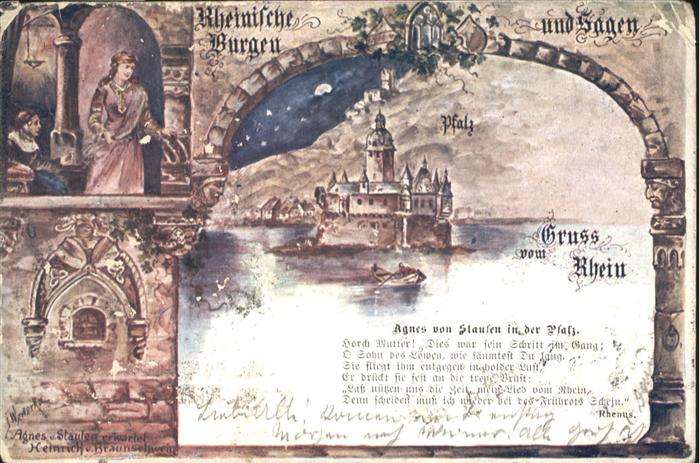 Rheinische
Burgen
und Sagen
Pfalz
Gruss
vom
Rhein
Agnes von Staufen in der Pfalz.
Horch Mutter! „Dies war sein Schritt im Gang;
O Sohn des Löwen, wie säumtest Du lang.“
Sie fliegt ihm entgegen in holder Lust,
Er drückt sie fest an die treue Brust:
„Laß nützen uns die Zeit, mein Lieb vom Rhein,
Denn scheiden muß ich wieder bei des Frührots Schein.“
Rhenus.
Agnes v. Staufen erwartet
Heinrich v. Braunschweig